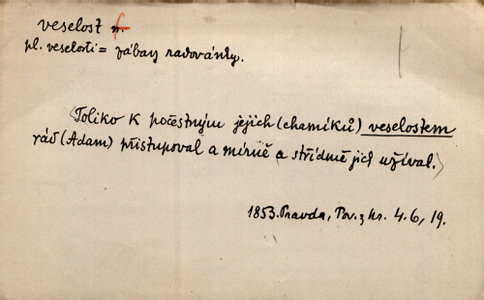 veselost f.
pl. veselosti = zábavy radovánky.
(Toliko k počestným jejich (chamíků) veselostem
rád (Adam) přistupoval a mírně a střídmě jich užíval.)
1853. Pravda, Pov. z kr. 4.6, 19.